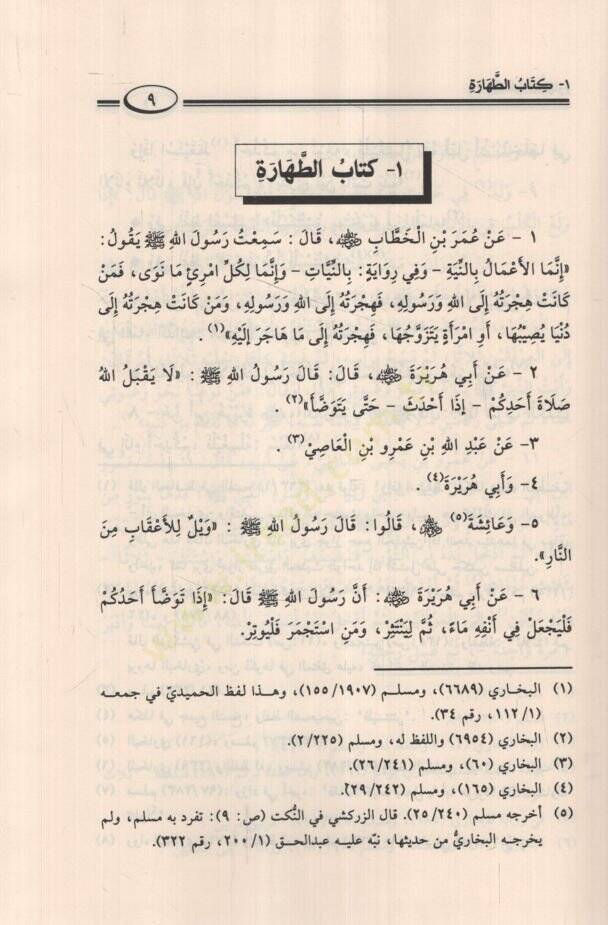 ١- كِتَابُ الطَّهَارَةِ
٩
١- كتابُ الطَّهَارَةِ
١ - عَنْ عُمَرَ بْنِ الْخَطَّابِ ﵁، قَالَ: سَمِعْتُ رَسُولَ اللهِ ﷺ يَقُولُ:
«إِنَّمَا الأَعْمَالُ بِالنِّيَّةِ - وَفِي رِوَايَةٍ: بِالنِّيَّاتِ - وَإِنَّمَا لِكُلِّ امْرِئٍ مَا نَوَى، فَمَنْ
كَانَتْ هِجْرَتُهُ إِلَى اللهِ وَرَسُولِهِ، فَهِجْرَتُهُ إِلَى اللهِ وَرَسُولِهِ، وَمَنْ كَانَتْ هِجْرَتُهُ إِلَى
دُنْيَا يُصِيبُهَا، أَوِ امْرَأَةٍ يَتَزَوَّجُهَا، فَهِجْرَتُهُ إِلَى مَا هَاجَرَ إِلَيْهِ»(١) .
٢ - عَنْ أَبِي هُرَيْرَةَ ﵁، قَالَ: قَالَ رَسُولُ اللهِ ﷺ : «لَا يَقْبَلُ اللهُ
صَلَاةَ أَحَدِكُمْ - إِذَا أَحْدَثَ - حَتَّى يَتَوَضَّأَ»(٢) .
٣- عَنْ عَبْدِ اللهِ بْنِ عَمْرِو بْنِ الْعَاصِيْ(٣) .
٤- وَأَبِي هُرَيْرَةَ(٤).
٥- وَعَائِشَةَ(٥) ﵃، قَالُوا: قَالَ رَسُولُ اللهِ ﷺ : «وَيْلٌ لِلأَعْقَابِ مِنَ
النَّارِ».
٦ - عَنْ أَبِي هُرَيْرَةَ ﵁: أَنَّ رَسُولَ اللهِ ﷺ قَالَ: «إِذَا تَوَضَّأَ أَحَدُكُمْ
فَلْيَجْعَلْ فِي أَنْفِهِ مَاءً، ثُمَّ لِيَنْتَثِرْ، وَمَنِ اسْتَجْمَرَ فَلْيُوتِرْ.
(١) البخاري (٦٦٨٩)، ومسلم (١٥٥/١٩٠٧)، وهذا لفظ الحميديّ في جمعه
(١١٢/١، رقم ٣٤).
(٢) البخاري (٦٩٥٤) واللفظ له، ومسلم (٢/٢٢٥).
(٣) البخاري (٦٠)، ومسلم (٢٦/٢٤١).
(٤) البخاري (١٦٥)، ومسلم (٢٩/٢٤٢).
(٥) أخرجه مسلم (٢٥/٢٤٠). قال الزركشي في النُّكت (ص: ٩): تفرد به مسلم، ولم
يخرجه البخاريُّ من حديثها، نبّه عليه عبدالحق (٢٠٠/١، رقم ٣٢٢).